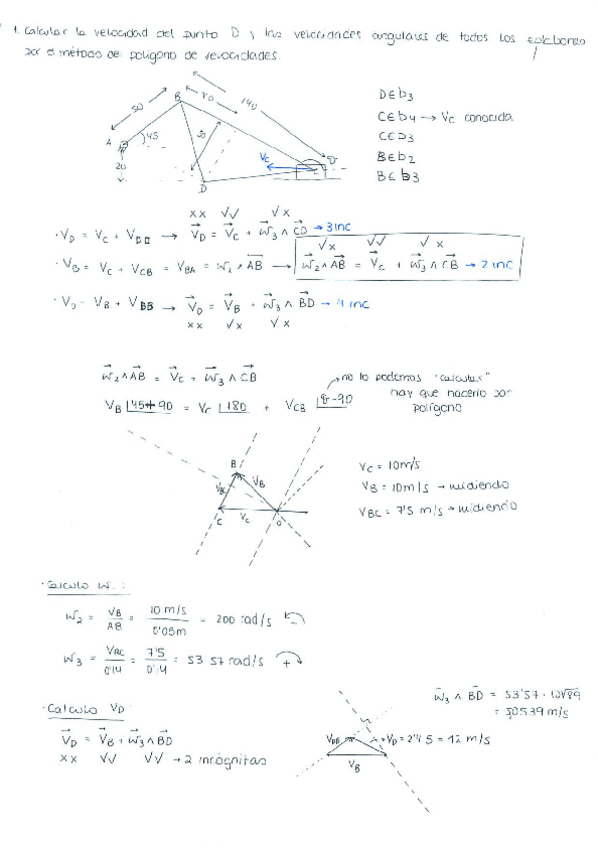 1. Calcular la velocidad del punto D y las velocidades angulares de todos los eslabones
por el método del polígono de velocidades.
50
B
70
140
A
45
20
50
Vc
D
D∈b3
C∈b4 → Vc conocida
C∈b3
B∈b2
B∈b3
xx √√ √x
· VD = VC + → VD = VC + W3 ∧ CD → 3 inc
√x √√ √x
· VB = VC + VCB = VBA = W2 ∧ AB → W2 ∧ AB = VC + W3 ∧ CB → 2 inc
· VD = VB + → VD = VB + W3 ∧ BD → 4 inc
xx √x √x
W2 ∧ AB = VC + W3 ∧ CB
no lo podemos "calcular"
hay que hacerlo por
polígono
VB 45+90 = VC 180 + VCB -90
B
VB
VBC
C
VC
O
VC = 10m/s
VB = 10m/s → midiendo
VBC = 7'5 m/s → midiendo
· Calculo W :
W2 = VB / AB = 10 m/s / 0'05m = 200 rad/s
W3 = VBC / 0'14 = 7'5 / 0'14 = 53'57 rad/s
· Calculo VD:
VD = VB + W3 ∧ BD
xx √√ √√ → 2 incógnitas
W3 ∧ BD = 53'57 · 10√89
= 50539 m/s
VDB
VD = 2'4·5 = 12 m/s
VB